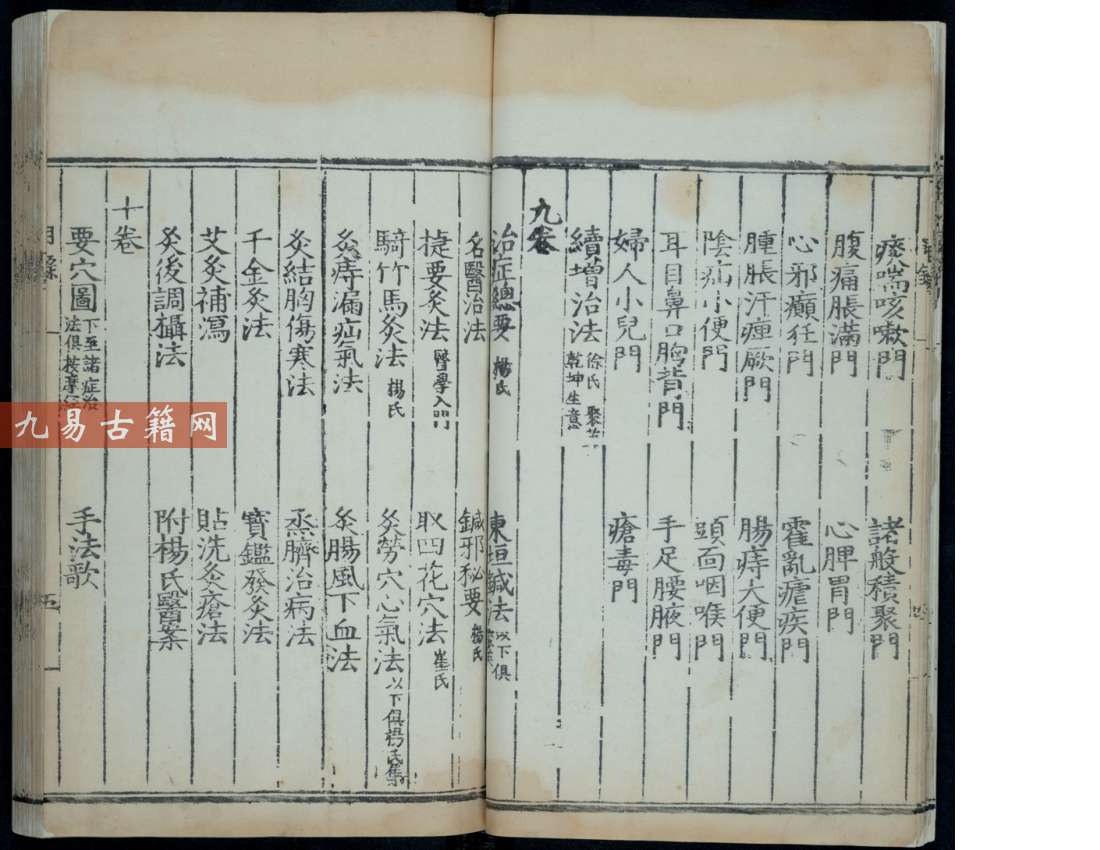 痰喘咳嗽門 諸般積聚門
腹痛脹滿門 心脾胃門
心邪癲狂門 霍亂瘧疾門
腫脹汗痺厥門 腸痔大便門
陰疝小便門 頭面咽喉門
耳目鼻口胸背門 手足腰腋門
婦人小兒門 瘡毒門
續增治法 徐氏 乾坤生意
九卷
治症總要 楊氏 東垣鍼法 以下俱
名醫治法 鍼邪秘要 楊氏
捷要灸法 醫學入門 取四花穴法 崔氏
騎竹馬灸法 楊氏 灸勞穴心氣法 以下俱楊氏集
灸痔漏疝氣法 灸腸風下血法
灸結胸傷寒法 烝臍治病法
千金灸法 寶鑑發灸法
艾灸補瀉 貼洗灸瘡法
灸後調攝法 附楊氏醫案
十卷
要穴圖 下至諸症治法俱按摩 手法歌
目錄
九易古籍网